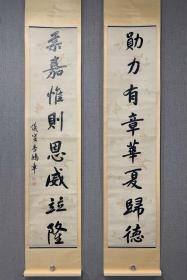 勋力有章華夏歸德
柔嘉惟則恩威竝隆
儀叟李鴻章